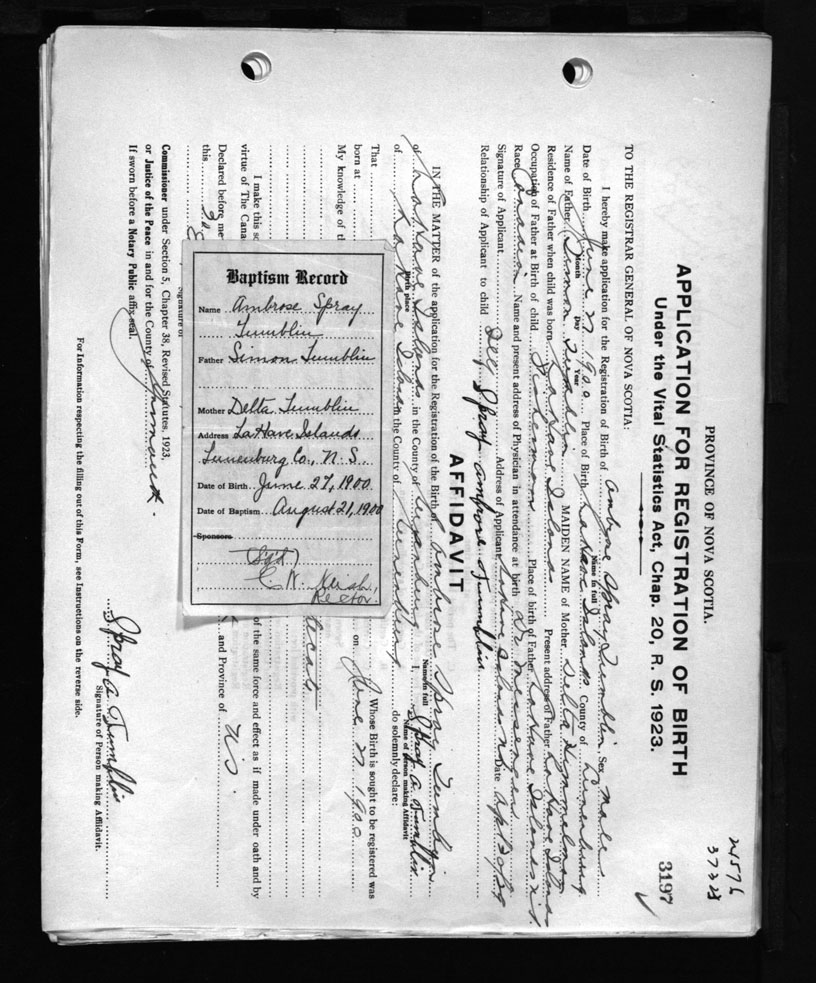 24576
3732
3197 ✓
PROVINCE OF NOVA SCOTIA.
APPLICATION FOR REGISTRATION OF BIRTH
Under the Vital Statistics Act, Chap. 20, R. S. 1923.
TO THE REGISTRAR GENERAL OF NOVA SCOTIA:
I hereby make application for the Registration of Birth of Ambrose Spray Tumblin Sex Male
Name in full
Date of Birth June 27 1900 Place of Birth LaHave Islands County of Lunenburg
Month Day Year
Name of Father Simon MAIDEN NAME of Mother Delta
Residence of Father when child was born LaHave Islands Present address of Father LaHave Islands
Occupation of Father at Birth of child Fisherman Place of birth of Father LaHave Islands N.S.
Race Canadian Name and present address of Physician in attendance at birth Dr
Signature of Applicant Address of Applicant Date
Relationship of Applicant to child Self Spray Tumblin
AFFIDAVIT
IN THE MATTER of the application for the Registration of the Birth of Ambrose Spray
Name in full
of LaHave Islands in the County of Lunenburg I, Spray A Tumblin
Birth place
Name of person making Affidavit
of LaHave Islands in the County of Lunenburg do solemnly declare:
That Whose Birth is sought to be registered was
born at on June 27 1900
My knowledge of th
I make this so of the same force and effect as if made under oath and by
virtue of The Cana
Declared before me and Province of N.S.
this 30
Signature of
Spray A Tumblin
Signature of Person making Affidavit.
Commissioner under Section 5, Chapter 38, Revised Statutes, 1923.
or Justice of the Peace in and for the County of Yarmouth.
If sworn before a Notary Public affix seal.
For Information respecting the filling out of this Form, see Instructions on the reverse side.
Baptism Record
Name Ambrose Spray
Tumblin
Father Simon Tumblin
Mother Delta Tumblin
Address LaHave Islands
Lunenburg Co., N. S
Date of Birth June 27, 1900
Date of Baptism August 21, 1900
Sponsors
(Sg'd)
Rector.